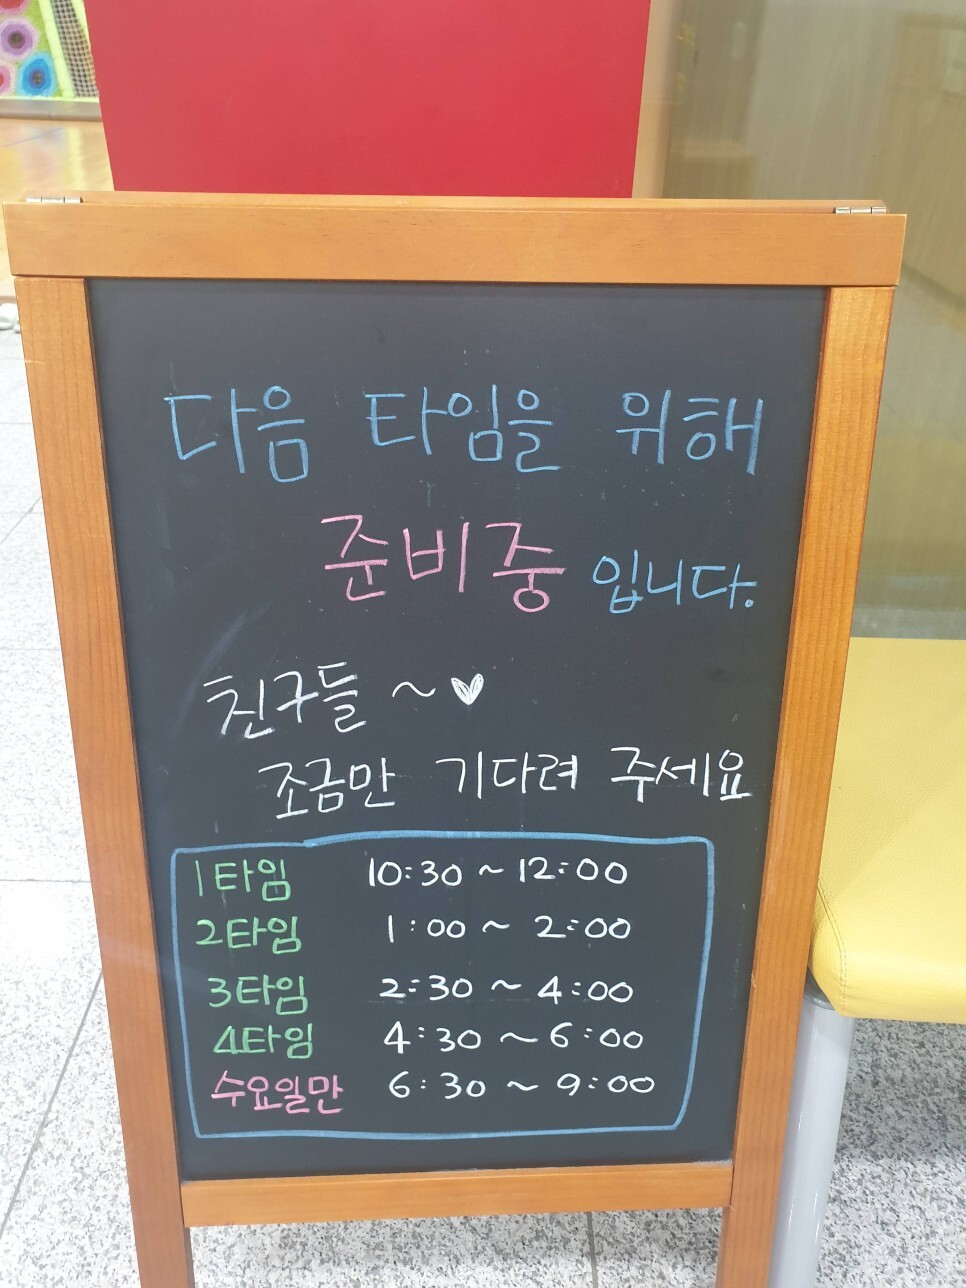 다음 타임을 위해
준비중 입니다.
친구들 ~ ♥
조금만 기다려 주세요
1타임 10:30 ~ 12:00
2타임 1:00 ~ 2:00
3타임 2:30 ~ 4:00
4타임 4:30 ~ 6:00
수요일만 6:30 ~ 9:00